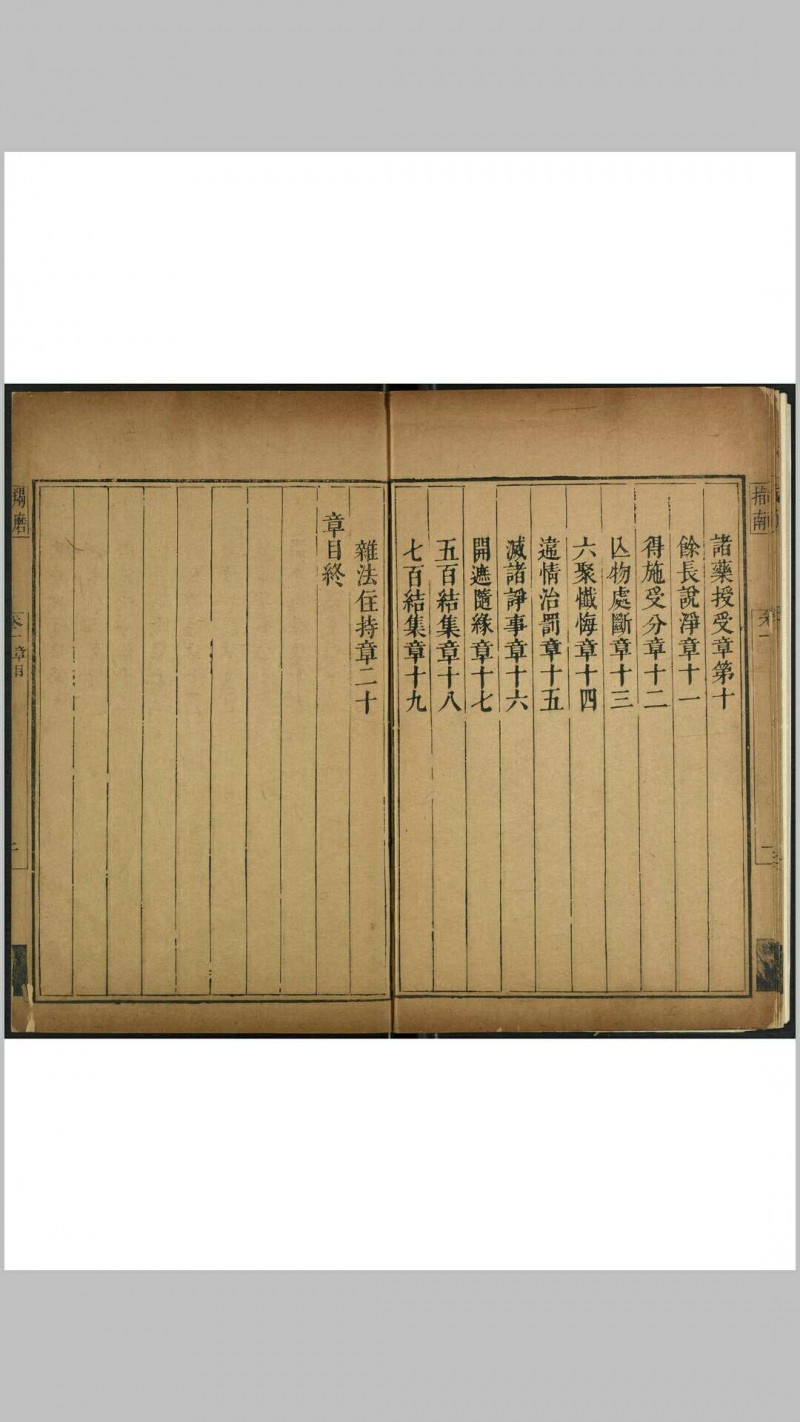 諸藥授受章第十
餘長說淨章十一
得施受分章十二
亾物處斷章十三
六聚懺悔章十四
違情治罰章十五
滅諸諍事章十六
開遮隨緣章十七
五百結集章十八
七百結集章十九
雜法住持章二十
章目終
指南
羯磨
章目